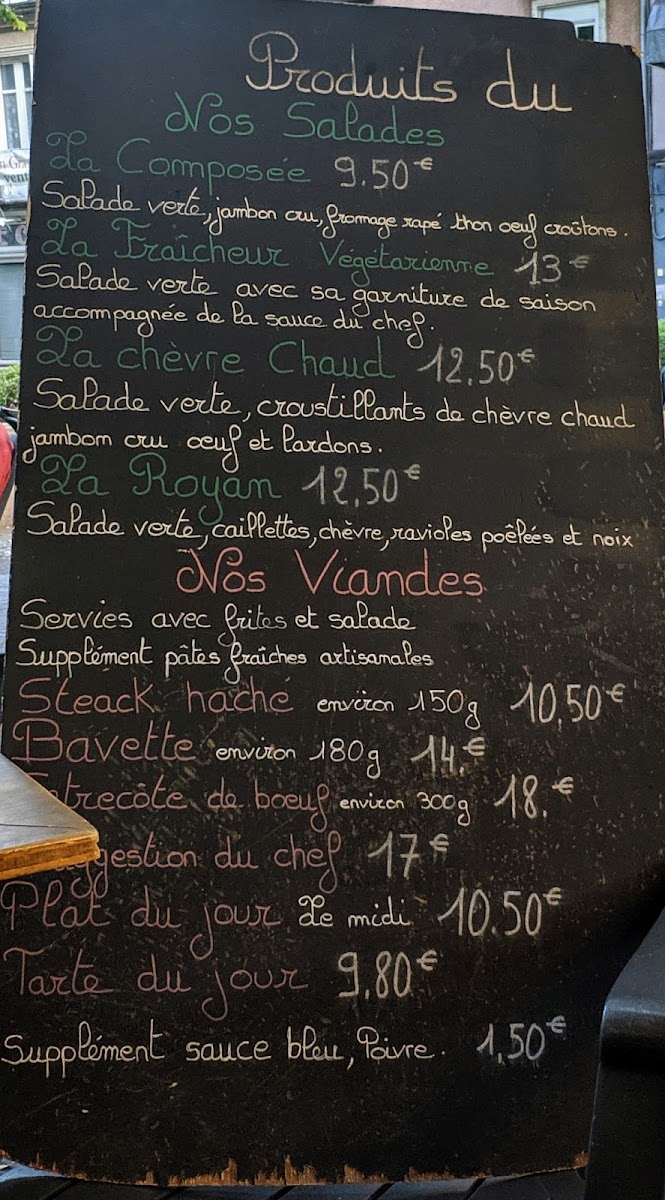 Produits du
Nos Salades
La Composée 9.50€
Salade verte, jambon cru, fromage rapé thon oeuf croûtons.
La Fraîcheur Végétarienne 13€
Salade verte avec sa garniture de saison
accompagnée de la sauce du chef.
La chèvre Chaud 12,50€
Salade verte, croustillants de chèvre chaud
jambom cru oeuf et lardons.
La Royan 12,50€
Salade verte, caillettes, chèvre, ravioles poêlées et noix
Nos Viandes
Servies avec frites et salade
Supplément pâtes fraîches artisanales
Steack haché environ 150g 10,50€
Bavette environ 180g 14.€
trecôte de boeuf environ 300g 18.€
ggestion du chef 17€
Plat du jour Le midi 10.50€
Tarte du jour 9,80€
Supplément sauce bleu, Poivre. 1,50€